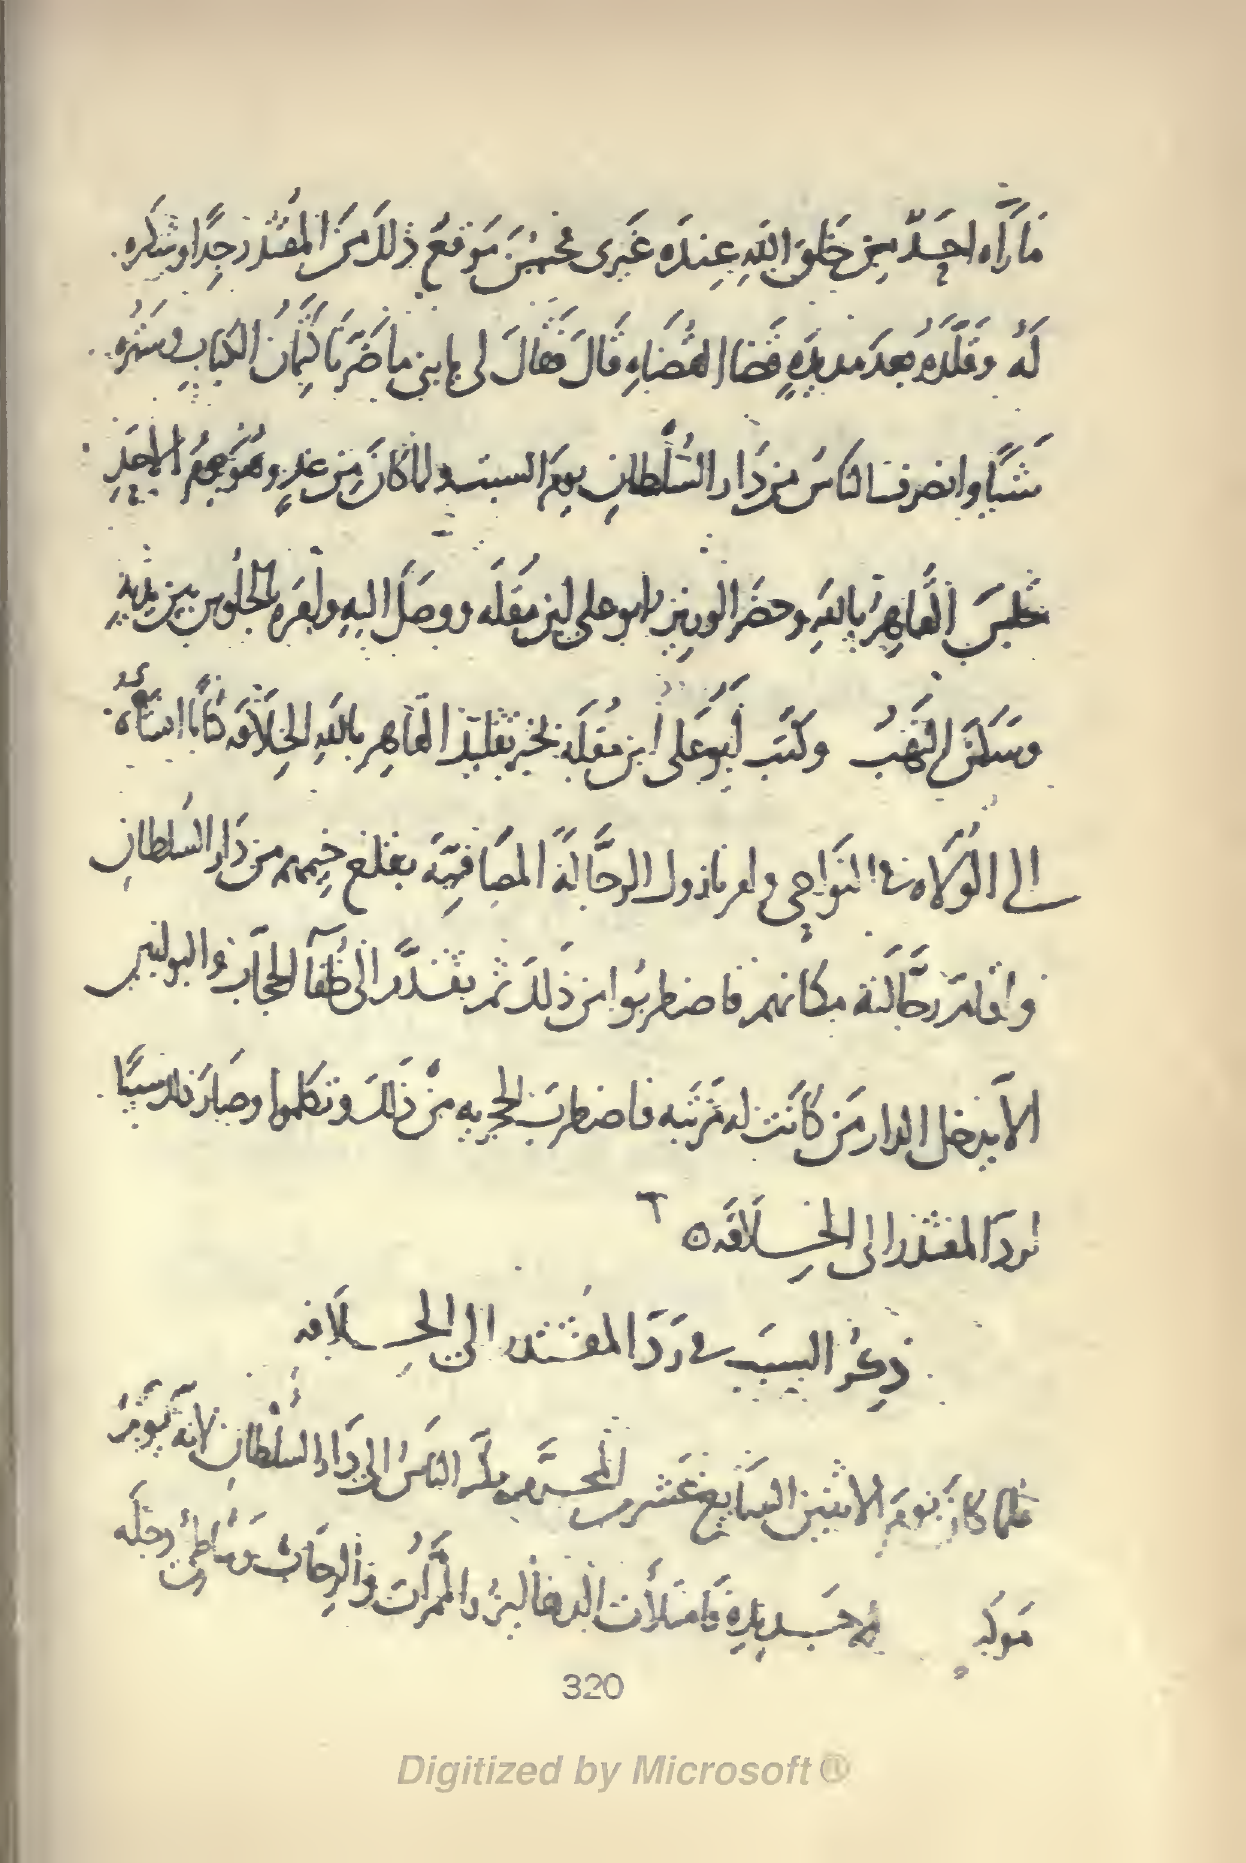 ما رآه احد من خلق الله عنده غيرى فحسن موقع ذلك من المقتدر جدا وشكره
له وقلده بعد مديدة قضا القضاه قال فقال لى يا بنى ما ضرنا كتمان الكتاب وستره
شيا وانصرف الناس من دار السلطان يوم السبت ولما كان من غد وهو يوم الاحد
جلس القاهر بالله وحضر الوزير ابو على ابن مقله ووصل اليه وامره بالجلوس بين يديه
وسكن النهب وكتب ابو على ابن مقله بخبر تقليد القاهر بالله الخلافه كتابا انشاه
الى الولاه فى النواحى وامر نازوك الرجالة المصافية بقلع خيمهم من دار السلطان
واقام رجالته مكانهم فاضطربوا من ذلك ثم تقدم الى خلفا الحجاب والبوابين
الا يدخل الدار من كانت له مرتبه فاضطرب الحجريه من ذلك وتكلموا وصار ذلك سببا
لرد المقتدر الى الخلافه
ذكر السبب فى رد المقتدر الى الخلافه
فلما كان يوم الاثنين السابع عشر المحرم بكر الناس الى دار السلطان لانه يوم
موكب حديده فامتلات الدهاليز والممرات والرحاب وشاطى دجله
320
Digitized by Microsoft ®